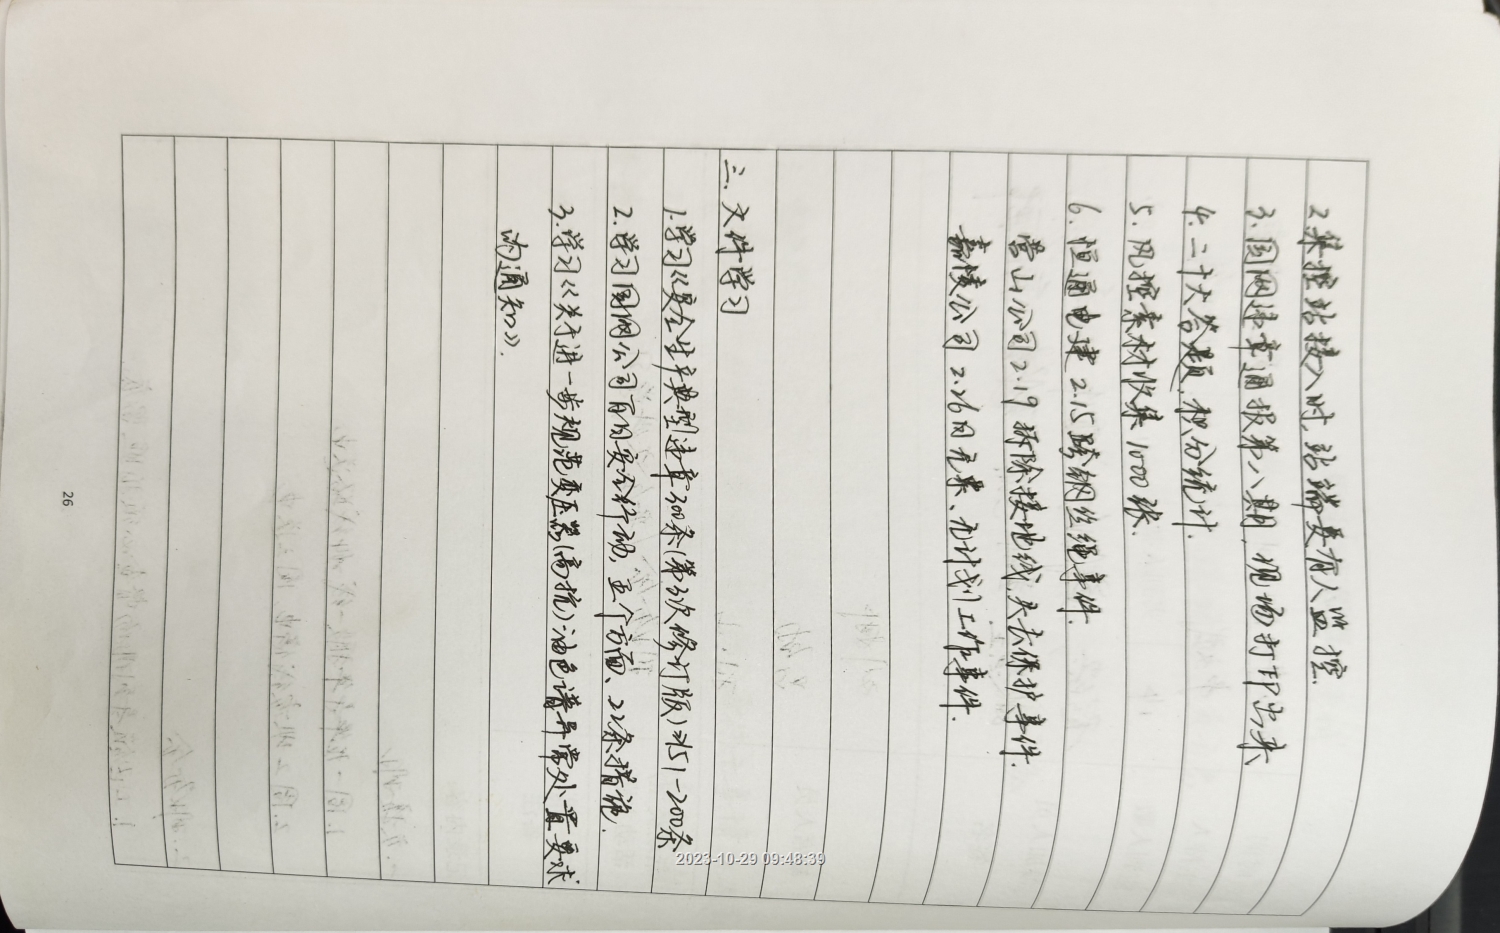 2.集控站接入时,站端要有人监控.
3.国网违章通报第八期,现场打印出来
4.二十大答题,积分统计.
5.风控素材收集1000张.
6.恒通电建2.15跨钢丝绳事件.
营山公司2.19拆除接地线,失去保护事件.
嘉陵公司2.26日无票、无计划工作事件.
二.文件学习
1.学习《安全生产典型违章300条(第3次修订版)》151-200条
2.学习国网公司百日安全行动,五个方面、22条措施.
3.学习《关于进一步规范变压器(高抗)油色谱异常处置要求
的通知》.
26
2023-10-29 09:48:39